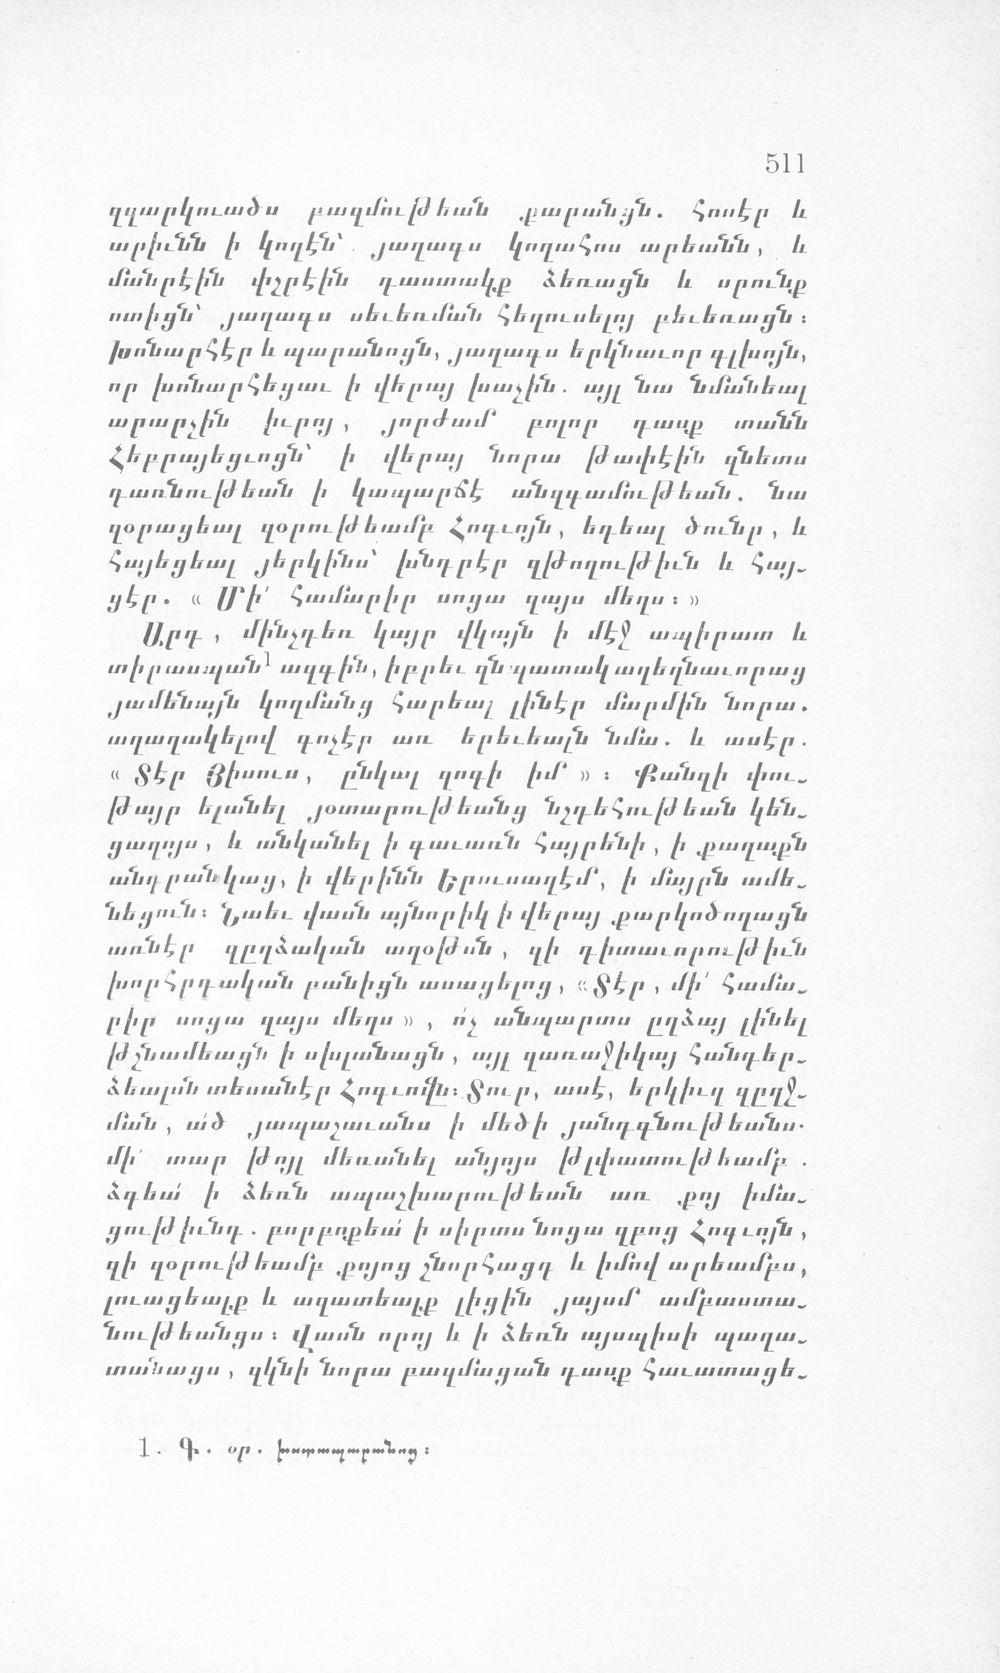 511
զզարկուածս բազմութեան քարանցն. հոսէր և
արիւնն ի կողէն՝ յաղագս կողահոս արեանն, և
մանրէին փշրէին դաստակք ձեռացն և սրունք
ոտիցն՝ յաղագս սեւեռման հեղուսելոյ բեւեռացն։
խոնարհէր և պարանոցն, յաղագս երկնաւոր գլխոյն,
որ խոնարհեցաւ ի վերայ խաչին. այլ նա նմանեալ
արարչին իւրոյ, յորժամ բոլոր դասք տանն
Հեբրայեցւոցն՝ ի վերայ նորա թափէին զնետս
դառնութեան ի կապարճէ անզգամութեան. նա
զօրացեալ զօրութեամբ Հոգւոյն, եդեալ ծունր, և
հայեցեալ յերկինս՝ խնդրէր զթողութիւն և հայ-
ցէր. « Մի՛ համարիր սոցա զայս մեղս։ »
Արդ, մինչդեռ կայր վկայն ի մէջ ապիրատ և
տիրասպան1 ազգին, իբրեւ զնպատակ աղեղնաւորաց
յամենայն կողմանց հարեալ լինէր մարմին նորա.
աղաղակելով գոչէր առ երեւեալն նմա. և ասէր.
« Տէր Յիսուս, ընկալ զոգի իմ »։ Քանզի փու-
թայր ելանել յօտարութեանց նշդեհութեան կեն-
ցաղոյս, և անկանել ի գաւառն հայրենի, ի քաղաքն
անդրանկաց, ի վերինն Երուսաղէմ, ի մայրն ամե-
նեցուն։ Նաեւ վասն այնորիկ ի վերայ քարկոծողացն
առնէր զըղձական աղօթսն, զի դիտաւորութիւն
խորհրդական բանիցն ասացելոց, «Տէր, մի՛ համա-
րիր սոցա զայս մեղս», ո՛չ անպարտս ըղձայ լինել
թշնամեացն ի սխլանացն, այլ զառաջիկայ հանդեր-
ձեալսն տեսանէր Հոգւովն։ Տուր, ասէ, երկիւղ զըղջ-
ման, ած յապաշաւանս ի մեծի յանդգնութեանս.
մի՛ տար թոյլ մեռանել անյոյս թլփատութեամբ.
ձգեա՛ ի ձեռն ապաշխարութեան առ քոյ իմա-
ցութիւնդ. բորբոքեա՛ ի սիրտս նոցա զբոց Հոգւոյն,
զի զօրութեամբ քոյոց շնորհացդ և իմով արեամբս,
լուացեալք և ազատեալք լիցին յայսմ ամբաստա-
նութեանցս։ Վասն որոյ և ի ձեռն այսպիսի պաղա-
տանացս, զկնի նորա բազմացան դասք հաւատացե-
1. Գ. օր. խստապարանոց։